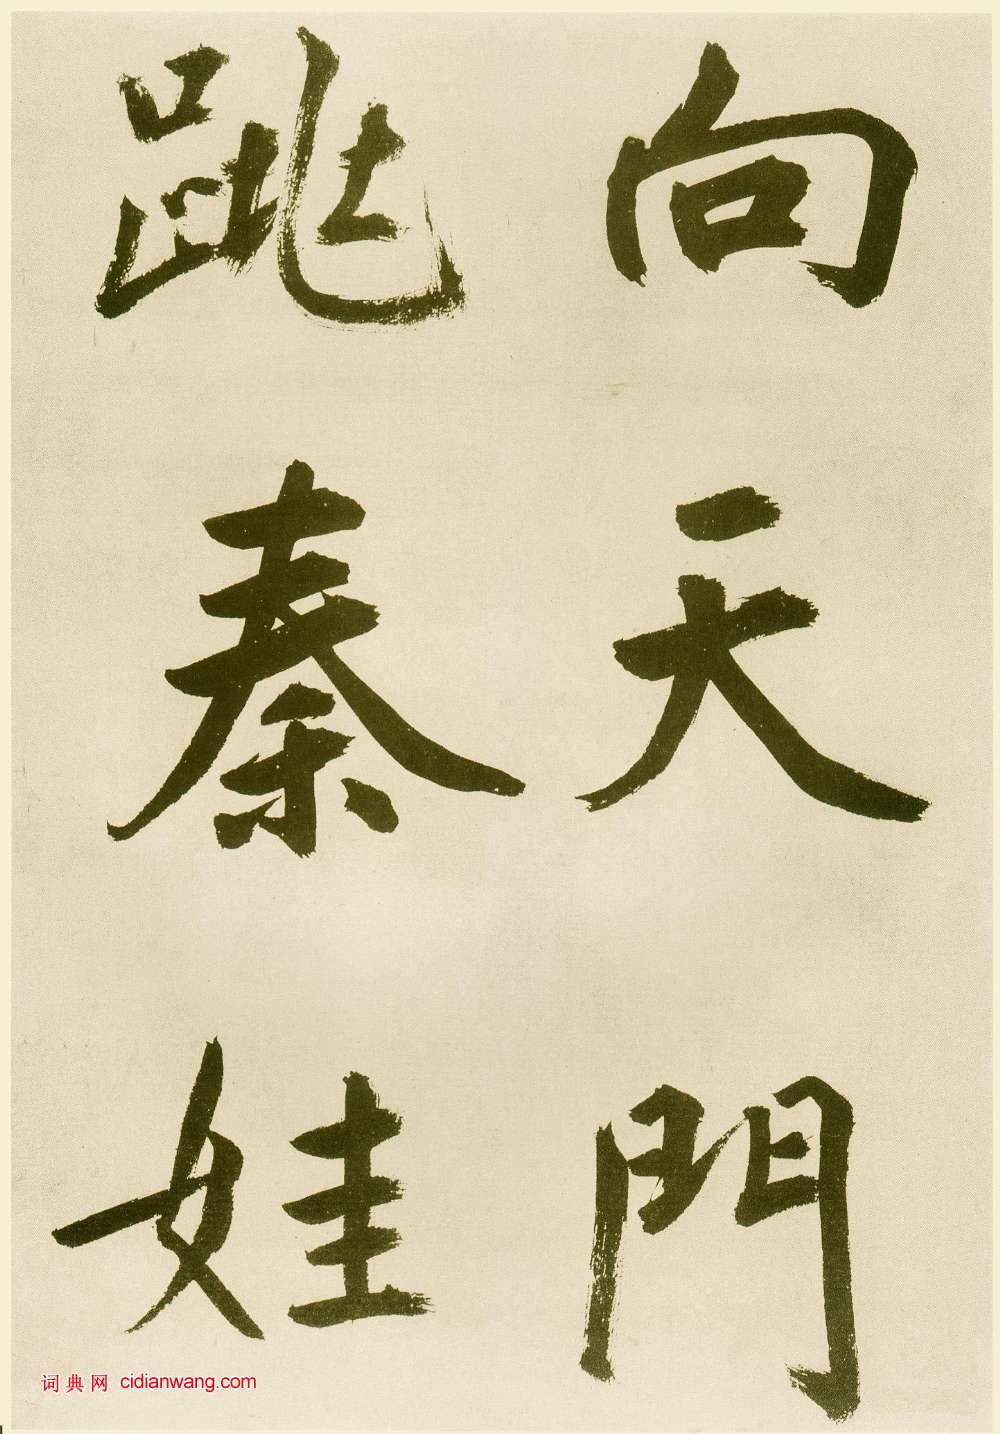 向天門
跳秦娃
词典网 cidianwang.com